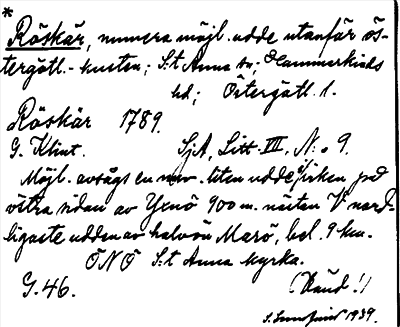 *
Röskär, numera möjl. udde utanför ös-
tergötl.-kusten; S:t Anna sn; Hammarkinds
hd; Östergötl. l.
Röskär 1789.
G. Klint. SjA, Litt. VII, N:o 9.
Möjl. avsågs en nuv. liten udde på
västra sidan av Yxnö 900 m. näst. V nord-
ligaste udden av halvön Marö, bel. 9 km.
ÖNÖ S:t Anna kyrka.
G. 46. (Känd!)
1939.